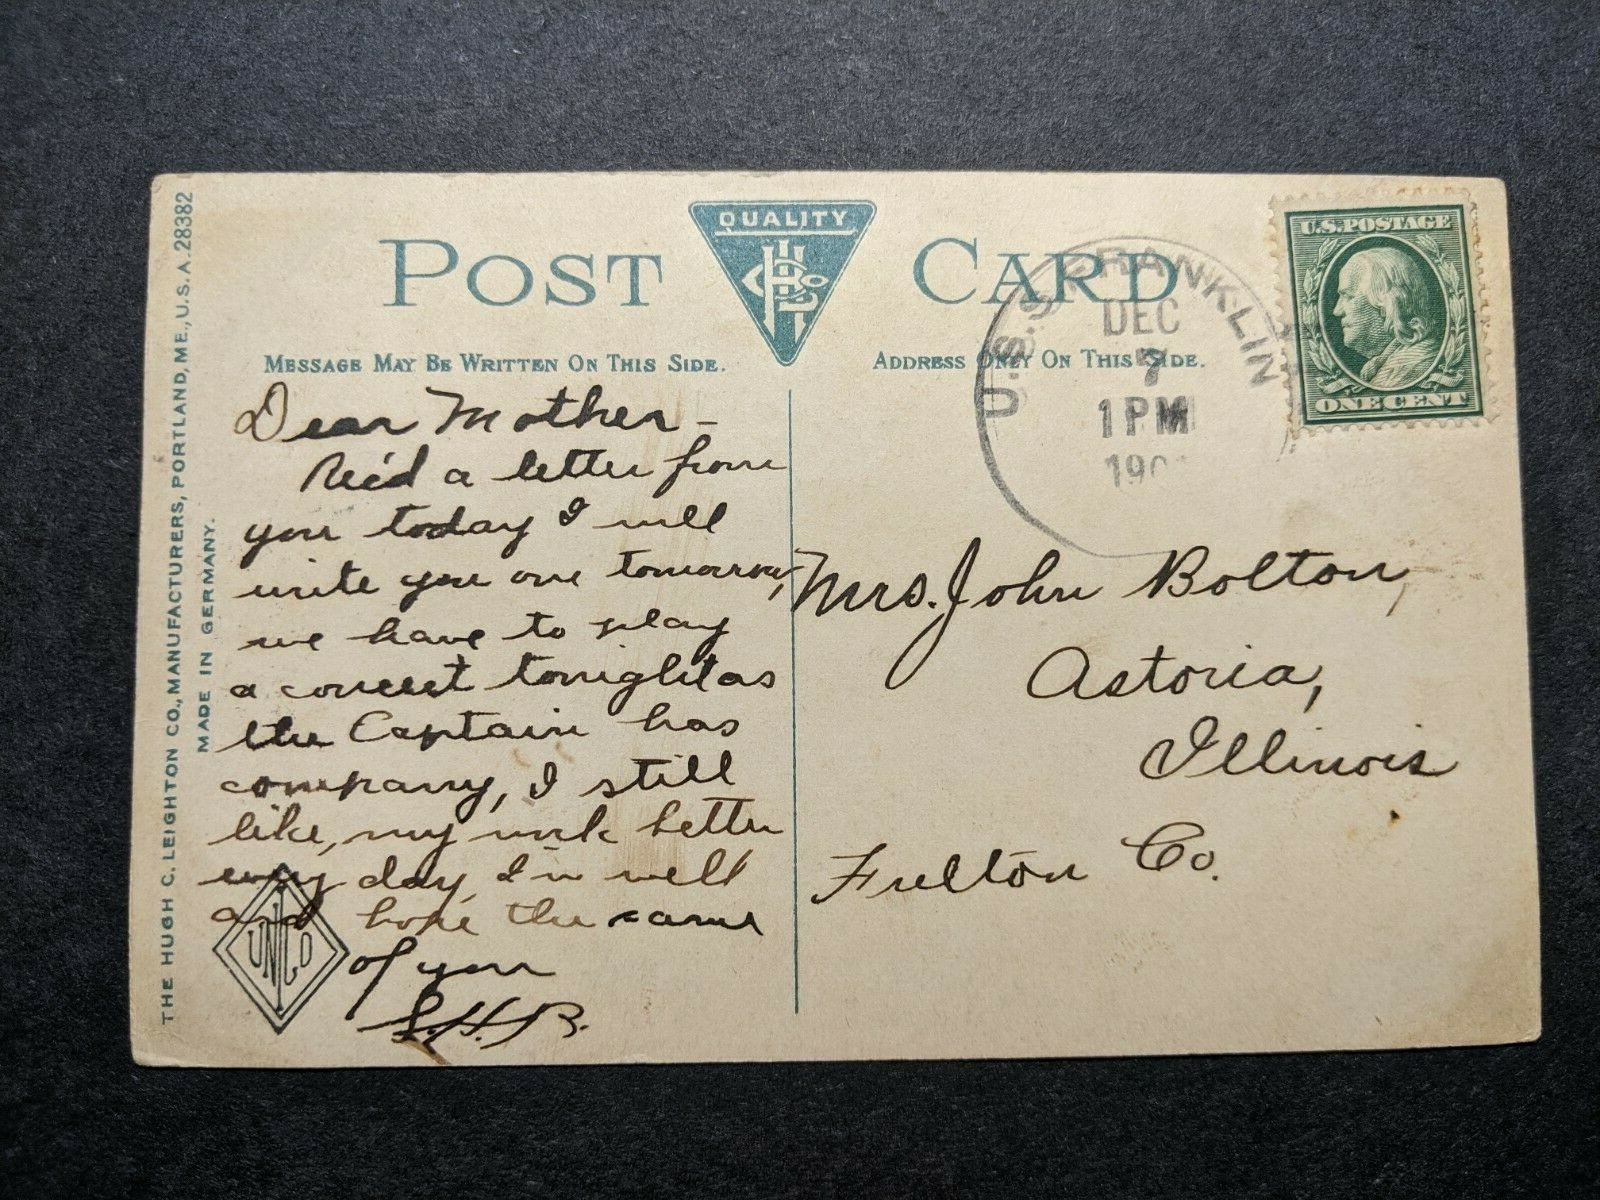 QUALITY
POST CARD
MESSAGE MAY BE WRITTEN ON THIS SIDE.
ADDRESS ONLY ON THIS SIDE.
THE HUGH C. LEIGHTON CO., MANUFACTURERS, PORTLAND, ME., U.S.A. 28382
MADE IN GERMANY.
Dear Mother –
Rec'd a letter from
you today I will
write you one tomorrow,
we have to play
a concert tonight as
the Captain has
company, I still
like, my work better
every day, I'm well
and hope the same
of you
S.H.B.
U.S.S. FRANKLIN
DEC
7
1 PM
190
U.S. POSTAGE
ONE CENT
Mrs. John Bolton,
Astoria,
Illinois
Fulton Co.